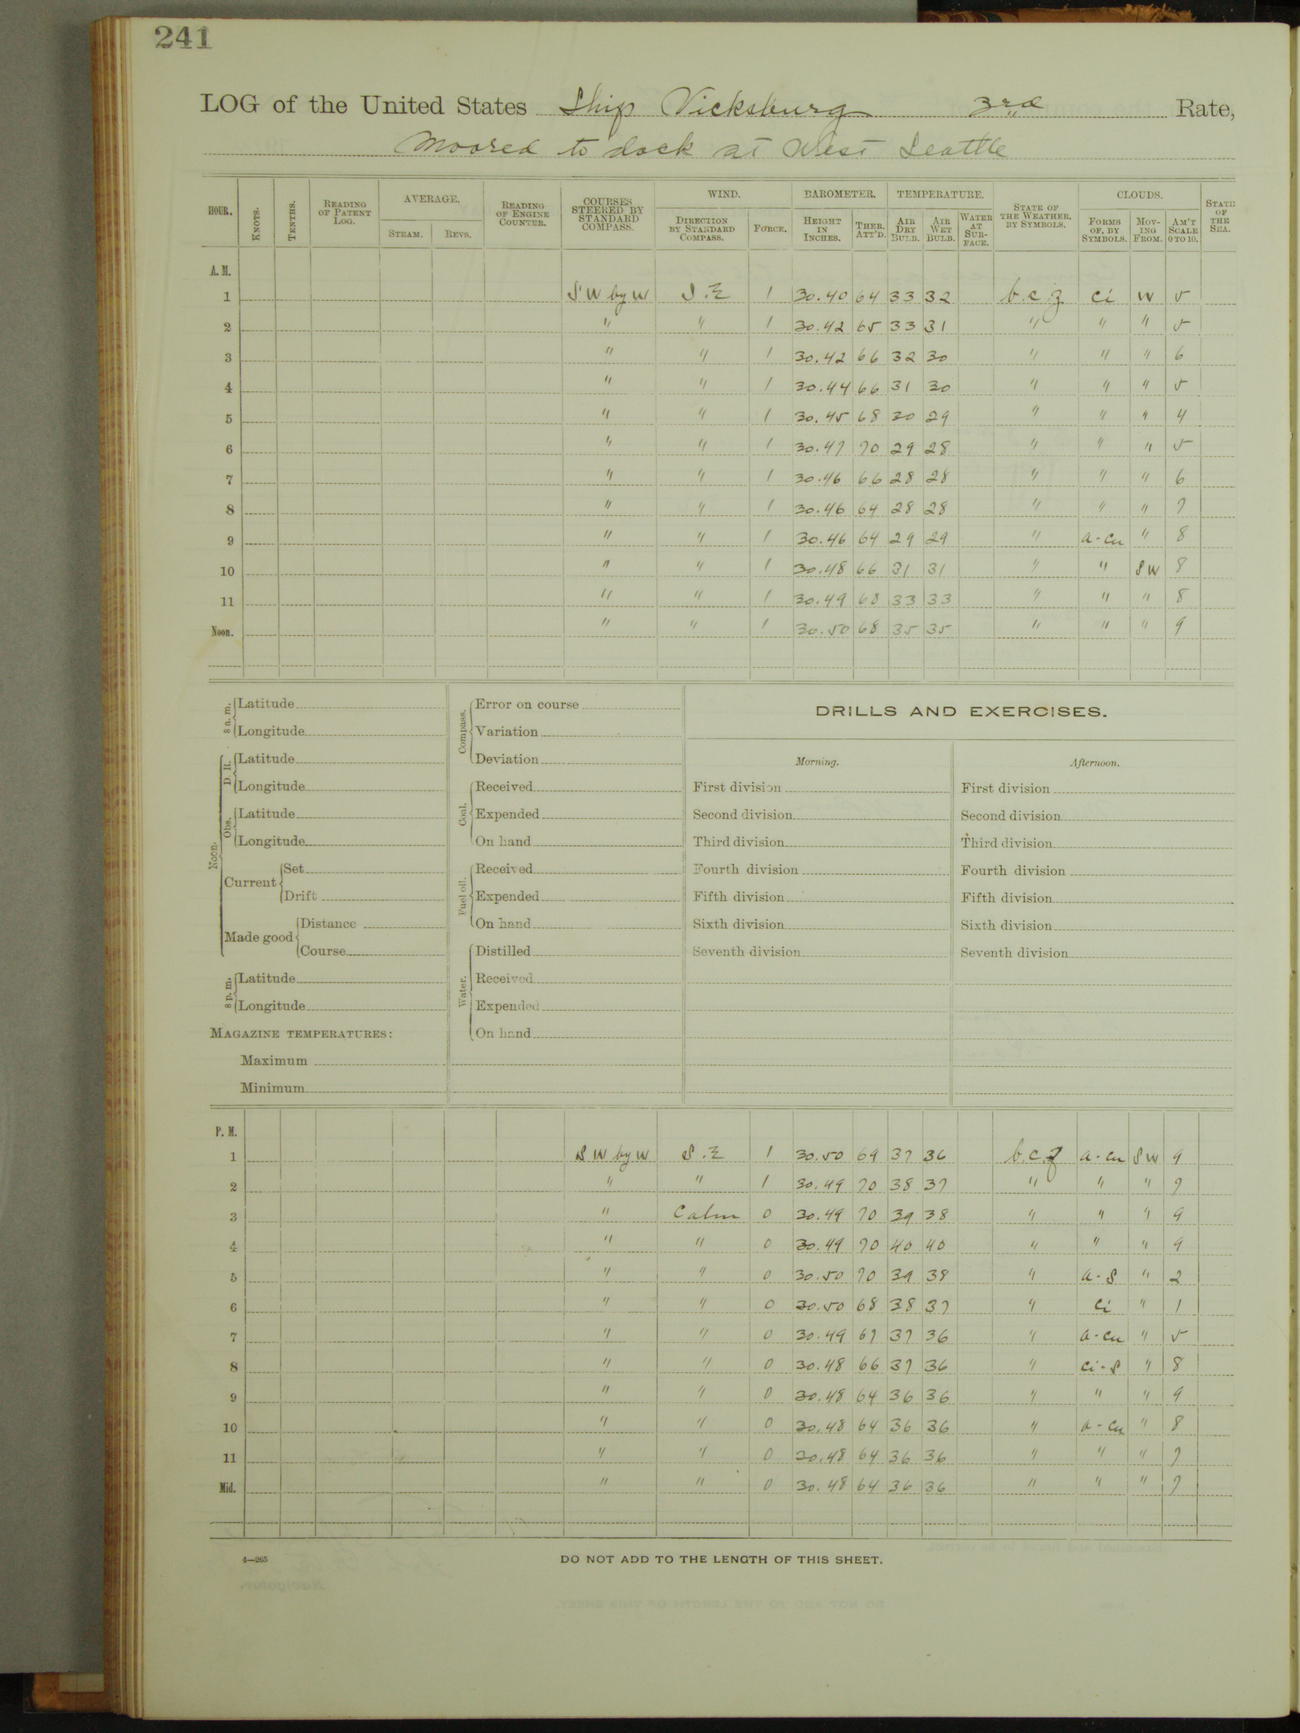 241
LOG of the United States Ship Vicksburg 3rd Rate,
Moored to dock at West Seattle
HOUR. KNOTS. TENTHS. READING OF PATENT LOG. AVERAGE. STEAM. REVS. READING OF ENGINE COUNTER. COURSES STEERED BY STANDARD COMPASS. WIND. DIRECTION BY STANDARD COMPASS. FORCE. BAROMETER. HEIGHT IN INCHES. THER. ATT'D. TEMPERATURE. AIR DRY BULB. AIR WET BULB. WATER AT SURFACE. STATE OF THE WEATHER, BY SYMBOLS. CLOUDS. FORMS OF, BY SYMBOLS. MOVING FROM. AM'T SCALE 0 TO 10. STATE OF THE SEA.
A. M.
1 SW by W S.E 1 30.40 64 33 32 b.c.z ci W 5
2 " " 1 30.42 65 33 31 " " " 5
3 " " 1 30.42 66 32 30 " " " 6
4 " " 1 30.44 66 31 30 " " " 5
5 " " 1 30.45 68 30 29 " " " 4
6 " " 1 30.47 70 29 28 " " " 5
7 " " 1 30.46 66 28 28 " " " 6
8 " " 1 30.46 64 28 28 " " " 7
9 " " 1 30.46 64 29 29 " a-cu " 8
10 " " 1 30.48 66 31 31 " " SW 8
11 " " 1 30.49 68 33 33 " " " 8
Noon. " " 1 30.50 68 35 35 " " " 9
8 a. m. Latitude
Longitude
Noon. D. R. Latitude
Longitude
Obs. Latitude
Longitude
Current Set
Drift
Made good Distance
Course
8 p. m. Latitude
Longitude
MAGAZINE TEMPERATURES:
Maximum
Minimum
Compass. Error on course
Variation
Deviation
Coal. Received
Expended
On hand
Fuel oil. Received
Expended
On hand
Water. Distilled
Received
Expended
On hand
DRILLS AND EXERCISES.
Morning.
First division
Second division
Third division
Fourth division
Fifth division
Sixth division
Seventh division
Afternoon.
First division
Second division
Third division
Fourth division
Fifth division
Sixth division
Seventh division
P. M.
1 SW by W S.E 1 30.50 69 37 36 b.c.z a-cu SW 9
2 " " 1 30.49 70 38 37 " " " 7
3 " Calm 0 30.49 70 39 38 " " " 9
4 " " 0 30.49 70 40 40 " " " 9
5 " " 0 30.50 70 39 38 " a-s " 2
6 " " 0 30.50 68 38 37 " ci " 1
7 " " 0 30.49 67 37 36 " a-cu " 5
8 " " 0 30.48 66 37 36 " ci-s " 8
9 " " 0 30.48 64 36 36 " " " 9
10 " " 0 30.48 64 36 36 " a-cu " 8
11 " " 0 30.48 64 36 36 " " " 7
Mid. " " 0 30.48 64 36 36 " " " 7
4—265
DO NOT ADD TO THE LENGTH OF THIS SHEET.